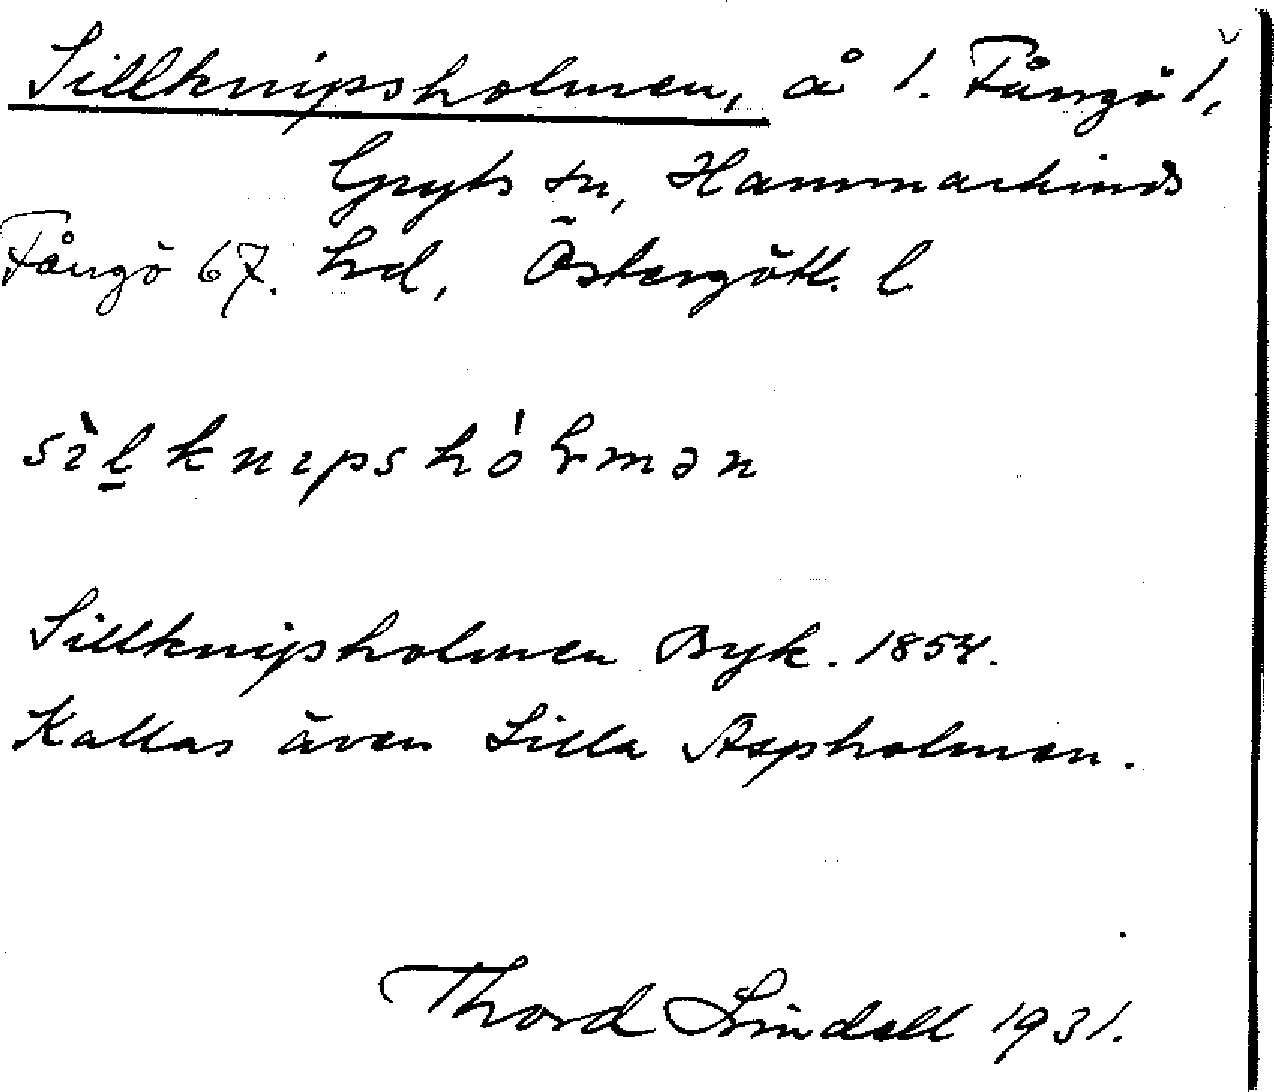 Sillknipsholmen, å 1. Fångö 1,
Gryts sn, Hammarkinds
Fångö 67. hd, Östergötl. l
sìl̠knɩpshólmən
Sillknipsholmen Byk. 1854.
Kallas även Lilla Aspholmen.
Thord Lindell 1931.